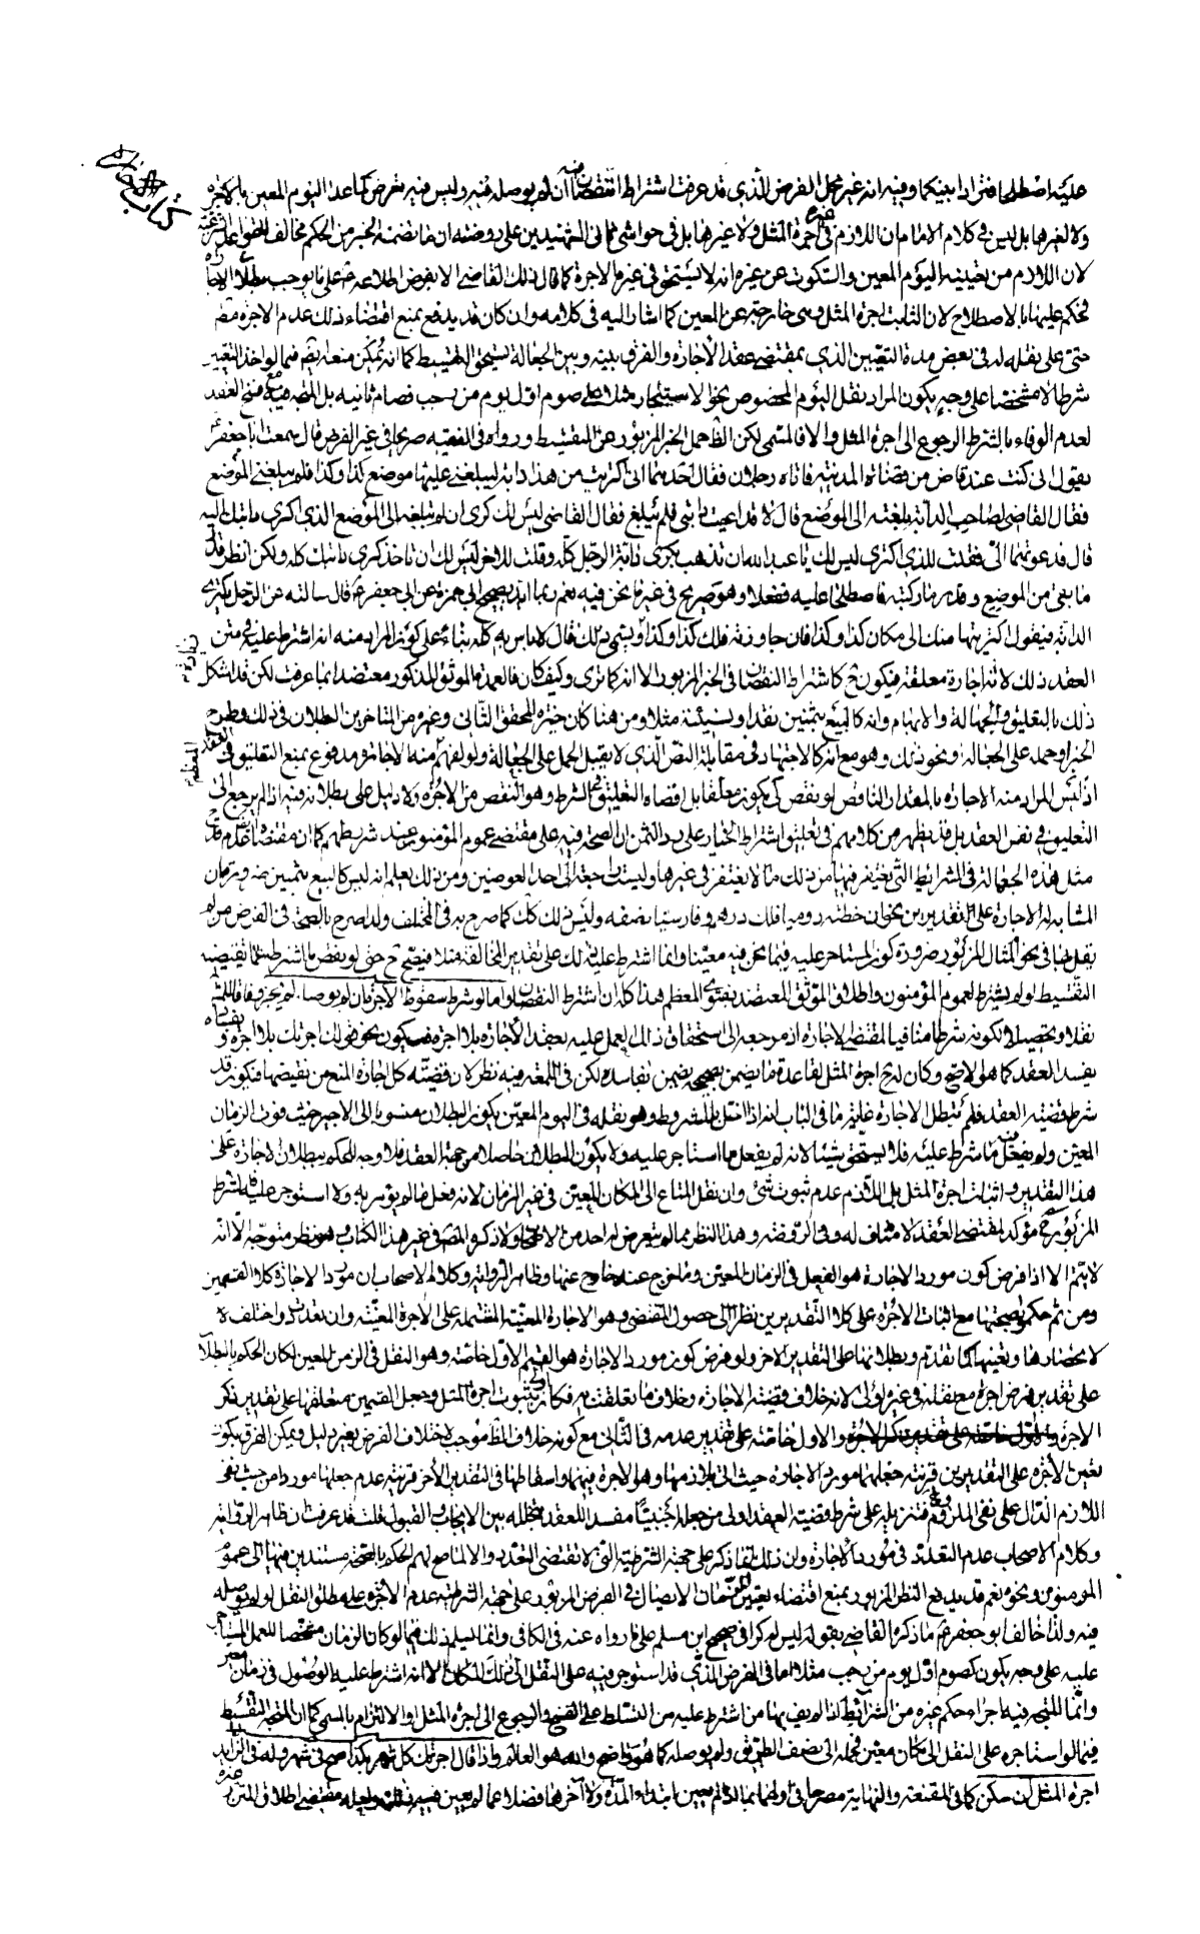 كتاب الاجارة
عليه اصطلحا فترادا بينكما وفيه انه غير محل الفرض الذي قد عرفت اشتراط انتقصا فيه ان لم يوصله فيه وليس فيه تعرض لما عدا اليوم المعين بالاجرة
ولا لغيرها بل ليس في كلام الامام ان اللازم في غيره اجرة المثل ولا غيرها بل في حواشي ثاني الشهيدين على روضته ان ما تضمنه الخبر من الحكم مخالف للقواعد الشرعية
لان اللازم من تعيينه اليوم المعين والسكوت عن غيره انه لا يستحق في غيره الاجرة كما قال ذلك القاضي الا بفرض اطلاعه ع على ما يوجب بطلان الاجارة
فحكم عليهما بالاصطلاح لان الثابت اجرة المثل وهي خارجة عن المعين كما اشار اليه في كلامه وان كان قد يدفع بمنع اقتضاء ذلك عدم الاجرة
حتى على نقله له في بعض مدة التعيين الذي بمقتضى عقد الاجارة والفرق بينه وبين الجعالة يستحق التقسيط كما انه يمكن منعه ايضا فيما لو اخذ التعيين
شرطا لا مشخصا على وجه يكون المراد نقل اليوم المخصوص نحو الاستيجار مثلا على صوم اول يوم من رجب فصام ثانيه بل المتجه فيه فسخ العقد
لعدم الوفاء بالشرط الرجوع الى اجرة المثل والا فالمسمى لكن الظ حمل الخبر المزبور عن التقسيط ورواه في الفقيه صريحا في غير الفرض قال سمعت ابا جعفر ع
يقول اني كنت عند قاض من قضاة المدينة فاتاه رجلان فقال احدهما اني اكتريت من هذا دابة ليبلغني عليها موضع كذا وكذا فلم يبلغني الموضع
فقال القاضي لصاحب الدابة بلغته الى الموضع قال لا قد اعيت دابتي فلم تبلغ فقال القاضي ليس لك كرى ان لم تبلغه الى الموضع الذي اكترى دابتك اليه
قال فدعوتهما الي فقلت للذي اكترى ليس لك يا عبد الله ان تذهب بكرى دابة الرجل كله وقلت للاخر ليس لك ان تاخذ كرى دابتك كله ولكن انظر قدر
ما بقي من الموضع وقدر ما ركبته فاصطلحا عليه ففعلا وهو صريح في غير ما نحن فيه نعم ربما ايد بصحيح ابي حمزة عن ابي جعفر ع قال سالته عن الرجل يكتري
الدابة فيقول اكتريتها منك الى مكان كذا وكذا فان جاوزته فلك كذا وكذا ويسمي ذلك قال لا باس به كله بناء على كون المراد منه انه اشترط عليه في متن
العقد ذلك لا انه اجارة معلقة فيكون ح كاشتراط النقصان في الخبر المزبور الا انه كما ترى وكيف كان فالعمدة الموثق المذكور معتضدا بما عرفت لكن قد اشكل
ذلك بالتعليق والجهالة والابهام وانه كالبيع بثمنين نقدا ونسيئة مثلا ومن هنا كان خيرة المحقق الثاني وغيره من المتاخرين البطلان في ذلك وطرح
الخبر او حمله على الجعالة ونحو ذلك وهو مع انه كالاجتهاد في مقابلة النص الذي لا يقبل الحمل على الجعالة ولو لفهم المعظم منه الاجارة مدفوع بمنع التعليق في العقد
اذ ليس المراد منه الاجارة بالمقدار الناقص لو نقص كي يكون معلقا بل اقصاه التعليق في الشرط وهو النقص من الاجرة ولا دليل على بطلانه فيه اذا لم يرجع الى
التعليق في نفس العقد بل قد يظهر من كلامهم في تعليق اشتراط الخيار على رد الثمن ان الصحة فيه على مقتضى عموم المؤمنون عند شروطهم كما ان مقتضاه
مثل هذه الجهالة في الشرائط التي يغتفر فيها من ذلك ما لا يغتفر في غيرها وليست راجعة الى احد العوضين ومن ذلك يعلم انه ليس كالبيع بثمنين
المشابه له الاجارة على تقديرين نحو ان خطته روميا فلك درهم وفارسيا نصفه وليس ذلك كك كما صرح به في المختلف ولذا صرح بالصحة في الفرض من لم
يقل بها في نحو المثال المزبور ضرورة كون المستاجر عليه فيما نحن فيه معينا وانما اشترط عليه ذلك على تقدير المخالفة مثلا فيصح ح حتى لو نقص بالشرط عما يقتضيه
التقسيط لو لم يشترط لعموم المؤمنون واطلاق الموثق المعتضد بفتوى المعظم هذا كله ان اشترط النقصان واما لو شرط سقوط الاجرة ان لم يوصله لم يجز وفاقا للمشهور
نقلا وتحصيلا لكونه شرطا منافيا لمقتضى الاجارة اذ مرجعه الى استحقاق ذلك العمل عليه بعقد الاجارة بلا اجرة فيكون نحو قولك اجرتك بلا اجرة و
يفسد العقد كما هو الاصح وكان له ح اجرة المثل لقاعدة ما يضمن بصحيحه يضمن بفاسده لكن في اللمعة فيه نظر لان قضيته كل اجارة المنع من نقيضها فيكون قد
شرط قضية العقد فلم تبطل الاجارة غاية ما في الباب انه اذا اخل بالمشروط وهو نقله في اليوم المعين يكون البطلان منسوبا الى الاجير حيث فوت الزمان
المعين ولم يفعل فيه ما شرط عليه فلا يستحق شيئا لانه لم يفعل ما استاجر عليه ولا يكون البطلان حاصلا من جهة العقد فلا وجه للحكم ببطلان الاجارة على
هذا التقدير واثبات اجرة المثل بل اللازم عدم ثبوت شئ وان نقل المتاع الى المكان المعين في غير الزمان لانه فعل ما لم يؤمر به ولا استوجر عليه فالشرط
المزبور ح مؤكد لمقتضى العقد لا مناف له وفي الروضة وهذا النظر مما لم يتعرض له احد من الاصحاب ولا ذكره المصنف في غير هذا الكتاب وهو نظر متوجه الا انه
لا يتم الا اذا فرض كون مورد الاجارة هو الفعل في الزمان المعين وما خرج عنه خارج عنها وظاهر الرواية وكلام الاصحاب ان مورد الاجارة كلا القسمين
ومن ثم حكموا بصحتها مع اثبات الاجرة على كلا التقديرين نظرا الى حصول المقتضى وهو الاجارة المعينة المشتملة على الاجرة المعينة وان تعددت واختلفت
لانحصارها وتعينها كما تقدم وبطلانها على التقدير الاخر ولو فرض كون مورد الاجارة هو القسم الاول خاصة وهو النقل في الزمن المعين لكان الحكم بالبطلان
على تقدير فرض اجرة مع نقله في غيره اولى لانه خلاف قضية الاجارة وخلاف ما تعلقت به فكان اولى بثبوت اجرة المثل وجعل القسمين متعلقها على تقدير ذكر
الاجرة والاول خاصة على تقدير عدمه في الثاني مع كونه خلاف الظ موجب لاختلاف الفرض بغير دليل ويمكن الفرق بكون
تعيين الاجرة على التقديرين قرينة جعلهما مورد الاجارة حيث اتى بلازمها وهو الاجرة فيهما واسقاطها في التقدير الاخر قرينة عدم جعلهما موردا من حيث نفي
اللازم الدال على نفي الملزوم وح فتنزيله على شرط قضية العقد اولى من جعله اجنبيا مفسدا للعقد بتخلله بين الايجاب والقبول قلت قد عرفت ان ظاهر الرواية
وكلام الاصحاب عدم التعدد في مورد الاجارة وان ذلك انما ذكر على جهة الشرطية التي لا تقتضي التعدد والا لما صح لهم الحكم بالصحة مستندين فيها الى عموم
المؤمنون ونحوه نعم قد يدفع النظر المزبور بمنع اقتضاء تعيين زمان الايصال في الفرض المزبور على جهة الشرطية عدم الاجرة على مطلق النقل لو لم يوصله
فيه ولذا خالف ابو جعفر ع ما ذكره القاضي بقوله ليس له كرا في صحيح ابن مسلم على ما رواه عنه في الكافي وانما يسلم ذلك فيما لو كان الزمان مشخصا للعمل المستاجر
عليه على وجه يكون كصوم اول يوم من رجب مثلا اما في الفرض الذي قد استوجر فيه على النقل الى ذلك المكان الا انه اشترط عليه الوصول في زمان معين
وانما المتجه فيه اجراء حكم غيره من الشرائط اذا لم يف بها من اشترط عليه من التسلط على الفسخ والرجوع الى اجرة المثل او الالتزام بالمسمى كما ان المتجه التقسيط
فيما لو استاجره على النقل الى مكان معين فحمله الى نصف الطريق ولم يوصله كما هو واضح والله هو العالم واذا قال اجرتك كل شهر بكذا صح في شهر وله في الزايد
اجرة المثل ان سكن كما في المقنعة والنهاية مصرحا في اولهما بما اذا لم يعين ابتداء المدة ولا اخرها فضلا عما لو عين